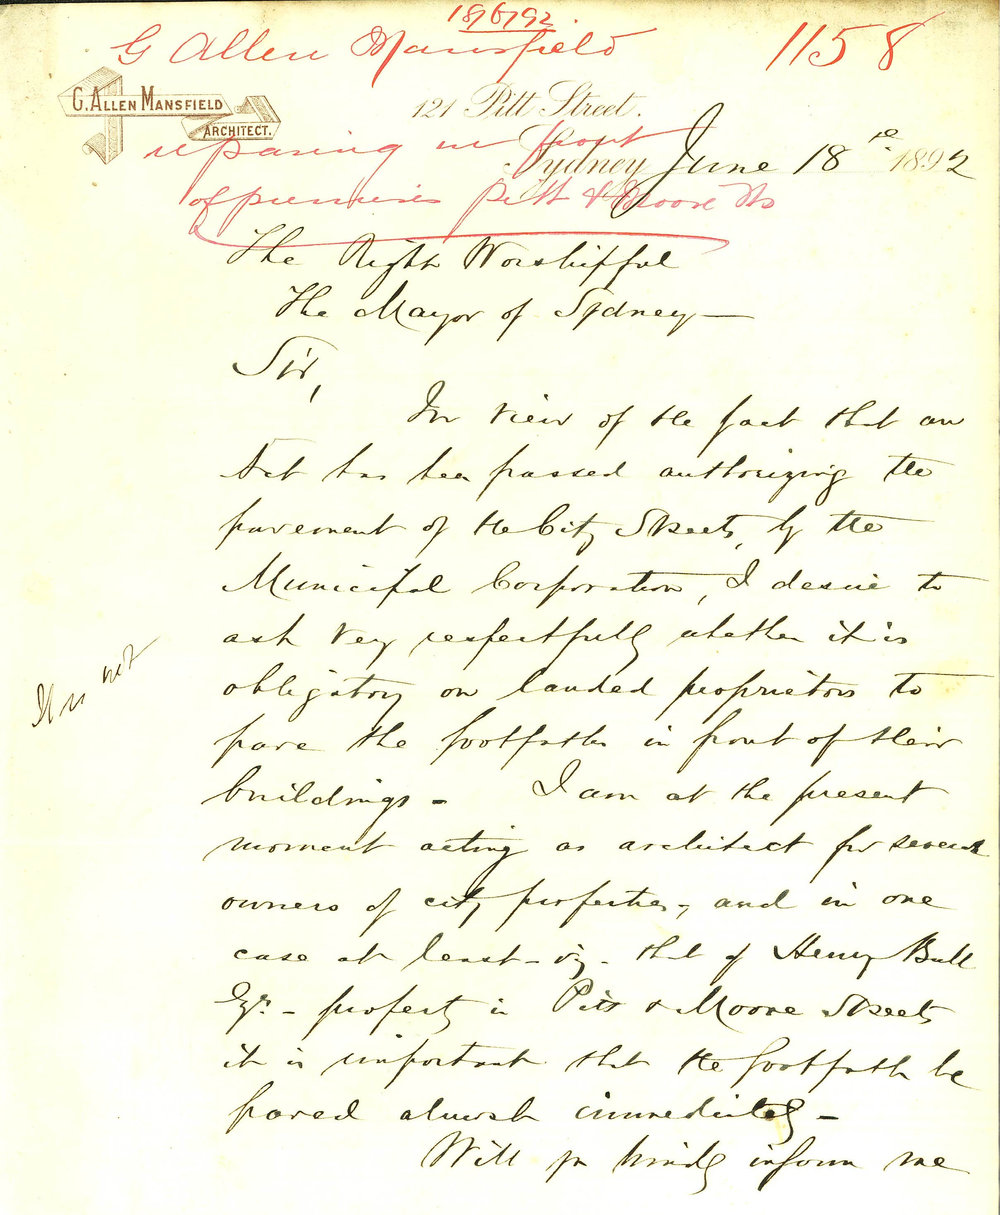 18/6/92
G Allen Mansfield 1158
G. ALLEN MANSFIELD
ARCHITECT.
121 Pitt Street.
Sydney June 18th 1892
repaving in front
of premises Pitt & Moore Sts
The Right Worshipful
The Mayor of Sydney—
Sir,
In view of the fact that an
Act has been passed authorizing the
pavement of the City Streets, by the
Municipal Corporation, I desire to
ask very respectfully whether it is
It is not
obligatory on landed proprietors to
pave the footpaths in front of their
buildings - I am at the present
moment acting as architect for several
owners of city properties, and in one
case at least - viz - that of Henry Bull
Esqr. - property in Pitt & Moore Streets
it is important that the footpath be
paved almost immediately -
Will you kindly inform me